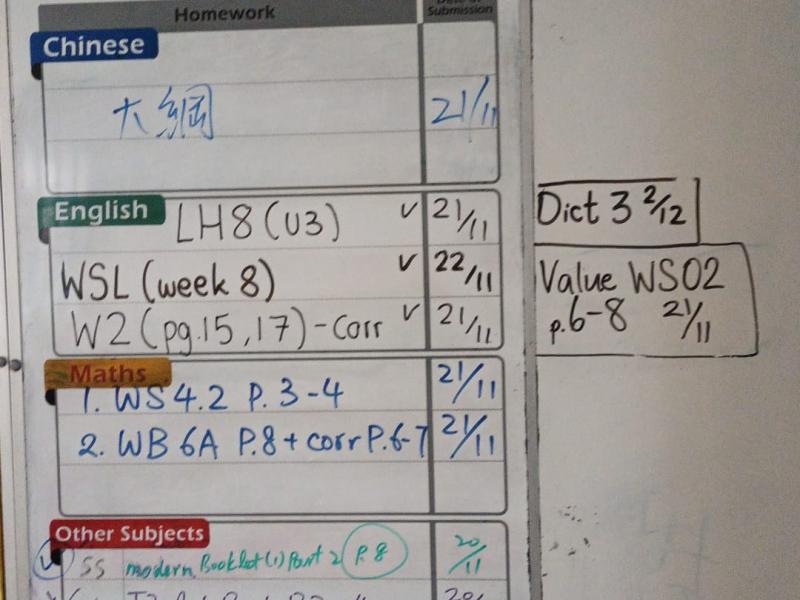 Homework Date of Submission
Chinese
大綱 21/11
English LH8 (U3) ✓ 21/11
WSL (week 8) ✓ 22/11
W2 (pg.15, 17) - Corr ✓ 21/11
Maths
1. WS 4.2 P. 3-4 21/11
2. WB 6A P.8 + corr P.6-7 21/11
Other Subjects
✓ SS modern Booklet (1) Part 2 P.8 20/11
Dict 3 2/12
Value WS02
p.6-8 21/11